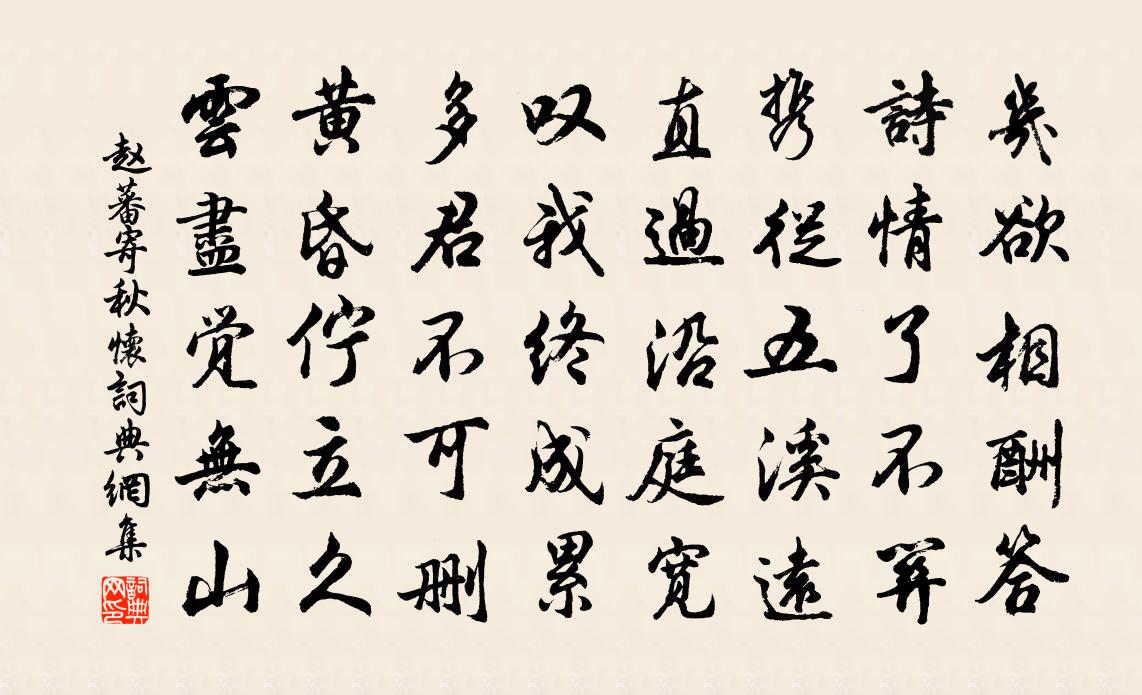 幾欲相酬答
詩情了不關
携從五溪遠
直過沿庭寬
叹我终成累
多君不可删
黄昏佇立久
雲盡覚無山
赵蕃寄秋懷詞典網集
詞典网印